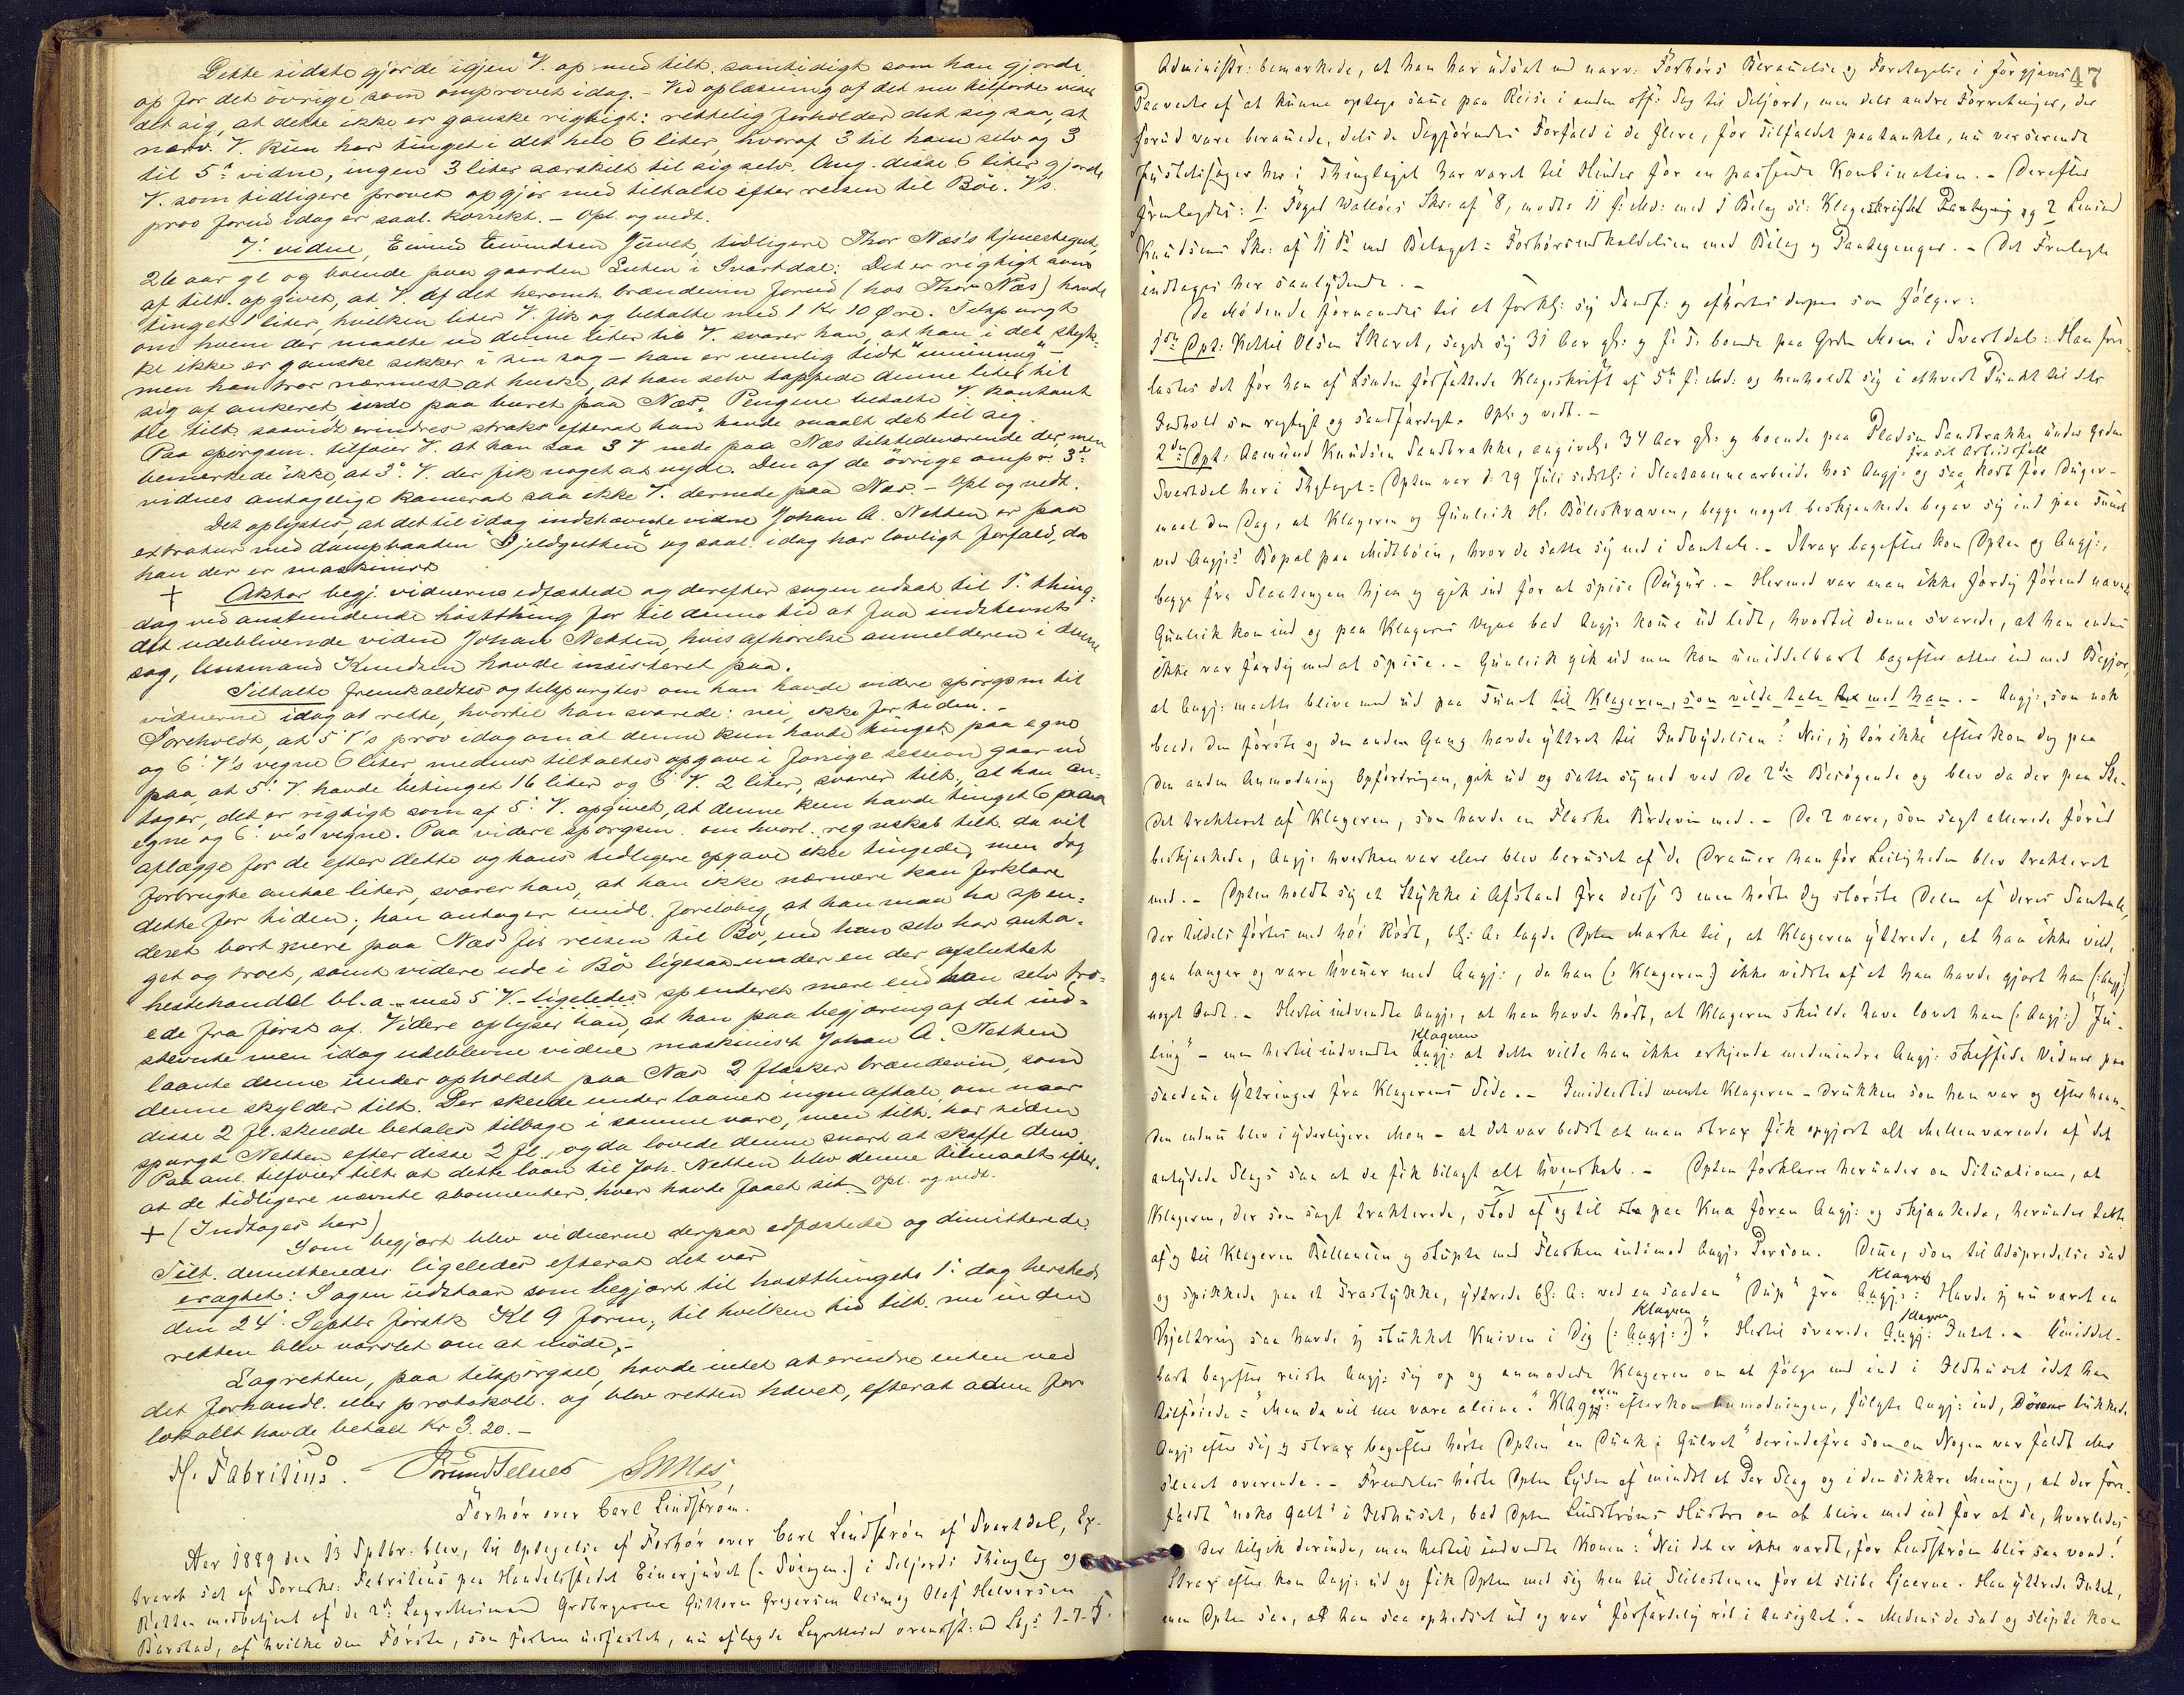 Dette sidste gjorde igjen V. op med tilt. samtidigt som han gjorde
op for det øvrige som omprovet idag. – Ved oplæsning af det nu tilførte viser
det sig, at dette ikke er ganske rigtigt: rettelig forholder det sig saa, at
nærv. V. kun har tinget i det hele 6 liter, hvoraf 3 til ham selv og 3
til 5te vidne, ingen 3 liter særskilt til sig selv. Ang. disse 6 liter gjorde
V. som tidligere provet opgjør med tiltalte efter reisen til Böe. V's
prov forud idag er saal. korrekt. – Opl. og vedt.
7: vidne, Eivind Eivindsen Juvet, tidligere Thor Næs's tjenestegut,
26 aar gl og boende paa gaarden Enten i Svartdal: Det er rigtigt som
af tilt. opgivet, at V. af det heromh. brændevin forud (hos Thor Næs) havde
tinget 1 liter, hvilken liter V. fik og betalte med 1 Kr 10 Øre. Tilspurgt
om hvem der maalte ud denne liter til V. svarer han, at han i det styk-
ke ikke er ganske sikker i sin sag – han er nemlig lidt "uminnug" –
men han tror nærmest at huske, at han selv tappede denne liter til
sig af ankeret inde paa buret paa Næs. Pengene betalte V. kontant
til tilt. saavidt erindres straks efterat han havde maalt det til sig.
Paa spörgsm. tilføier V. at han saa 3 V nede paa Næs tilstedeværende der, men
bemerkede ikke, at 3: V. der fik noget at nyde. Den af de övrige ompr. 3de
vidnes antagelige kamerat saa ikke V. dernede paa Næs. – Opl og vedt.
Det oplystes, at det til idag indstævnte vidne Johan A. Nesten er paa
extratur med dampbaaden "Fjeldgutten" og saal. idag har lovligt forfald, da
han der er maskinist
+ Aktor begj. vidnerne edfæstede og derefter sagen udsat til 1: thing-
dag ved anstundende höstthing for til denne tid at faa indstevnet
det udeblivende vidne Johan Nesten, hvis afhörelse anmelderen i denne
sag, lensmand Knudsen havde insisteret paa.
Tiltalte fremkaldtes og tilspurgtes om han havde videre spörgsm til
vidnerne idag at rette, hvortil han svarede: nei, ikke for tiden. –
Foreholdt, at 5 V's prov idag om at denne kun havde tinget paa egne
og 6: V's vegne 6 liter medens tiltaltes opgave i forrige session gaar ud
paa, at 5: V. havde betinget 16 liter og 6: V. 2 liter, svarer tilt., at han an-
tager, det er rigtigt som af 5: V. opgivet, at denne kun havde tinget 6 paa
egne og 6: vi's vegne. Paa videre spörgsm. om hvorl. regnskab tilt. da vil
aflægge for de efter dette og hans tidligere opgave ikke tingede, men dog
forbrugte antal liter, svarer han, at han ikke nærmere kan forklare
dette for tiden; han antager imidl. foreløbig, at han maa ha spen-
deret bort mere paa Næs før reisen til Bö, end han selv har anta-
get og troet, samt videre ude i Bö ligesaa under en der afsluttet
hestehandel bl. a. med 5 V. – ligeledes spenderet mere end han selv tro-
ede fra først af. Videre oplyser han, at han paa begjæring af det ind-
stevnte men idag udeblevne vidne maskinist Johan A. Nesten
laante denne under opholdet paa Næs 2 flasker brændevin, som
denne skylder tilt. Der skeede under laanet ingen aftale om naar
disse 2 fl. skulde betales tilbage i samme vare, men tilt. har siden
spurgt Nesten efter disse 2 fl., og da lovede denne snart at skaffe dem.
Paa anl. tilføier tilt. at dette laan til Joh. Nesten blev denne tilmaalt efter,
at de tidligere nævnte abonnenter, hver havde faaet sit. Opl. og vedt.
+ (Indtages her)
Som begjært blev vidnerne derpaa edfæstede og dimitterede.
Tilt. demitteredes ligeledes efterat det var
eragtet: Sagen udstaar som begjært til høstthingets 1: dag hersteds
den 24: Septbr förstk Kl 9 form, til hvilken tid tilt. nu inden
retten blev varslet om at møde. –
Lagretten, paa tilspørgsel, havde intet at erindre enten ved
det forhandl. eller protokoll. og blev retten hævet, efterat admr for
lokallt havde betalt Kr 3.20. –
H. Fabritius.
Forhör over Carl Lindström.
Aar 1889 den 13 Sptbr. blev, til Optagelse af Forhör over Carl Lindström af Svartdal, Ex-
traret sat af Sorenskr: Fabritius paa Handelsstedet Einerjuvet (: Svingen:) i Seljords Thinglag og
Retten medbetjent af de 2de Lagrettesmænd Grdbrgerne Guttorm Gregersen Aasen og Olaf Halvorsen
Barstad, af hvilke den Förste, som forhen uedfæstet, nu aflagde Lagretteed
47
Administr: bemærkede, at han har udsat med nærv: Forhörs Berammelse og Foretagelse i forgjæves
Paavente af at kunne optage samme paa Reise i anden off: Sag til Seljord, men dels andre Forretninger, der
forud vare berammede, dels de Sagförendes Forfald i de flere, for Tilfældet paatænkte, nu verserende
Justitssager her i Thinglaget har været til Hinder for en passende Kombination. – Derefter
fremlagdes: 1: Foged Walløes Skr: af 8, modt: 11 f: Md: med 1 Bilag si: Klageskriftet og 2 Lensmd
Knudsens Skr: af 11 ds med Bilaget = Forhörsindkaldelsen med Bilag og Paategninger. – Det Fremlagte
indtages her saalydende. –
De Mödende formanedes til at forkl: sig sandf: og afhörtes derpaa som fölger:
1ste Dpt: Kettil Olsen Skaret, sagde sig 31 Aar gl: og f: T. boende paa Grden Moen i Svartdal: Han fore-
læstes det for ham af Lensmden forfattede Klageskrift af 5te f: Md: og henholdt sig i ethvert Punkt til dets
Indhold som rigtigt og sandfærdigt. Opl: og vedt. –
2den Dpt: Aamund Knudsen Sandbrække, angivel: 34 Aar gl: og boende paa Pladsen Sandbrække under Grden
fra sit Arbeidsfelt
Svartdal her i Thglaget = Dpten var d: 29 Juli sidstl: i Slaataannearbeide hos Angj: og saa kort før Duger-
maal den Dag, at Klageren og Gunleik H. Böleskraaven, begge noget beskjænkede begav sig ind paa Tunet
ved Angj:s Bopæl paa Midtböen, hvor de satte sig ned i Samtale. – Strax bagefter kom Dpten og Angj:,
begge fra Slaatengen hjem og gik ind for at spise Dugur. – Hermed var man ikke færdig förend nævnte
Gunleik kom ind og paa Klagerens Vegne bad Angj: komme ud lidt, hvortil denne svarede, at han endnu
ikke var færdig med at spise. – Gunleik gik ud men kom umiddelbart bagefter atter ind med Begjær,
at Angj: maatte blive med ud paa Tunet til Klageren, som vilde tale med ham. – Angj:, som nok
baade den første og den anden Gang havde yttret til Indbydelsen: "Nei, jeg tör ikke" efterkom dog paa
den anden Anmodning Opfordringen, gik ud og satte sig ned ved de 2de Besögende og blev da der paa Ste-
det trakteret af Klageren, som havde en Flaske Brdevin med. – De 2 vare, som sagt allerede forud
beskjænkede, Angj: hverken var eller blev beruset af de Dramme han for Leiligheden blev trakteret
med. – Dpten holdt sig et Stykke i Afstand fra disse 3 men hörte dog største Delen af deres Samtale,
der tildels førtes med høi Röst, bl: A: lagde Dpten Mærke til, at Klageren yttrede, at han ikke vilde
gaa længer og være Uvenner med Angj:, da han (: Klageren:) ikke vidste af at han havde gjort ham (: Angj:)
noget Ondt. – Hertil indvendte Angj:, at han havde hört, at Klageren skulde have lovet ham (: Angj:) "Ju-
Klageren
ling" – men hertil indvendte Angj: at dette vilde han ikke erkjende medmindre Angj: skaffede Vidner paa
saadanne Yttringer fra Klagerens Side. – Imidlertid mente Klageren – drukken som han var og efterhaan-
den endnu blev i yderligere Mon – at det var bedst at man strax fik opgjort alt Mellemværende af det
antydede Slags saa at de fik bilagt alt Uvenskab. – Dpten forklarer herunder om Situationen, at
Klageren, der som sagt trakterede, stod af og til paa Knæ foran Angj: og skjænkede, herunder tabte
af og til Klageren Ballancen og stupte med Flasken indimod Angj: Person. Denne, som til Adspredelse sad
Klagers
og spikkede paa et Træstykke, yttrede bl: A: ved en saadan "Dup" fra Angj: Havde jeg nu været en
Klageren Klageren
Kjeltring saa havde jeg stukket Kniven i Dig (: Angj: :)". Hertil svarede Angj: Intet. – Umiddel-
bart bagefter reiste Angj: sig op og anmodede Klageren om at fölge med ind i Ildhuset idet han
tilföiede = "Men da vil me vare aleine". Klageren efterkom Anmodningen, fulgte Angj: ind, Dören lukkede
Angj: efter sig og strax bagefter hörte Dpten "en Dunk i Gulvet" derindefra som om Nogen var faldt eller
slaaet overende. – Fremdeles hörte Dpten Lyden af mindst et Par Slag og i den sikkre Mening, at der fore-
faldt "noko galt" i Ildhuset, bad Dpten Lindströms Hustru om at blive med ind for at se, hvorledes
der tilgik derinde, men hertil indvendte Konen: "Nei det er ikke værdt, for Lindström blir saa vond."
Strax efter kom Angj: ud og fik Dpten med sig hen til Slibestenen for at slibe Ljaaerne. Han yttrede Intet,
men Dpten saa, at han saa ophedset ud og var "forfærdelig röd i Ansigtet". – Medens de sad og slipte kom